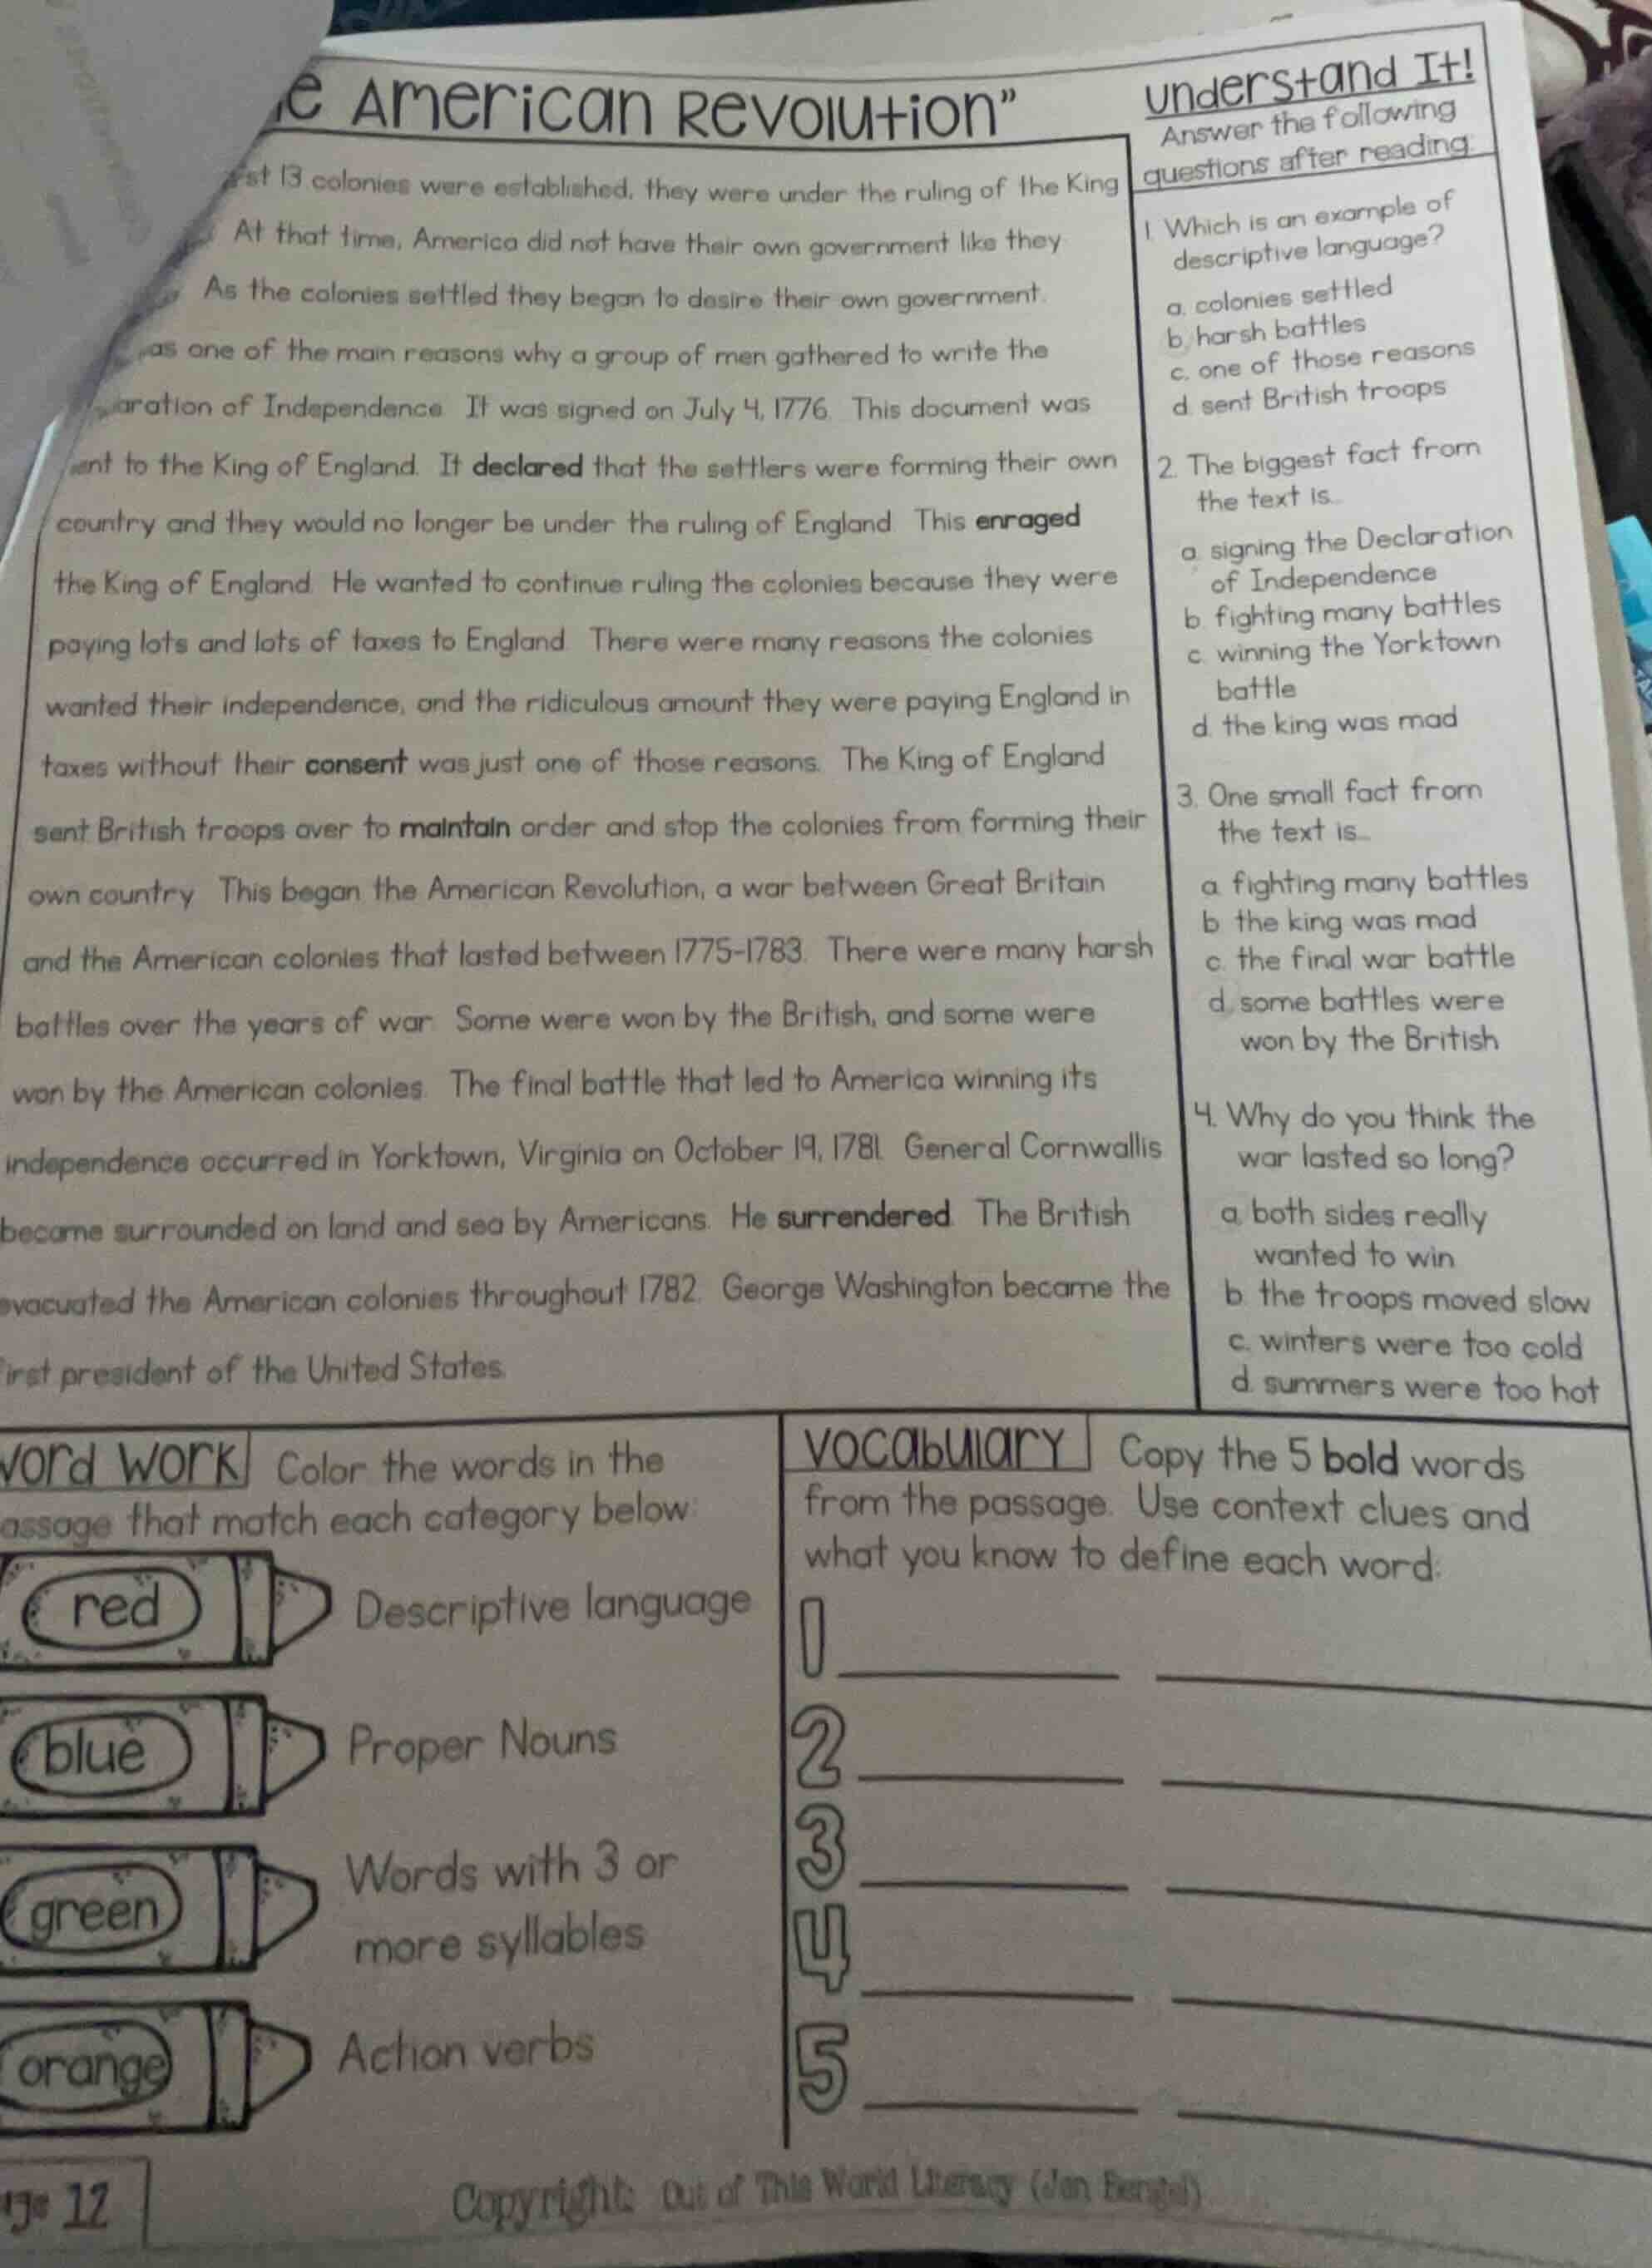 American Revolution"
13 colonies were established, they were under the ruling of the King
At that time, America did not have their own government like they
As the colonies settled they began to desire their own government.
as one of the main reasons why a group of men gathered to write the
aration of Independence. It was signed on July 4, 1776. This document was
to the King of England. It declared that the settlers were forming their own
country and they would no longer be under the ruling of England. This enraged
the King of England. He wanted to continue ruling the colonies because they were
paying lots and lots of taxes to England. There were many reasons the colonies
wanted their independence, and the ridiculous amount they were paying England in
taxes without their consent was just one of those reasons. The King of England
sent British troops over to maintain order and stop the colonies from forming their
own country. This began the American Revolution, a war between Great Britain
and the American colonies that lasted between 1775-1783. There were many harsh
battles over the years of war. Some were won by the British, and some were
won by the American colonies. The final battle that led to America winning its
independence occurred in Yorktown, Virginia on October 19, 1781. General Cornwallis
became surrounded on land and sea by Americans. He surrendered. The British
evacuated the American colonies throughout 1782. George Washington became the
first president of the United States.
Understand It!
Answer the following
questions after reading:
1. Which is an example of
descriptive language?
a. colonies settled
b. harsh battles
c. one of those reasons
d. sent British troops
2. The biggest fact from
the text is...
a. signing the Declaration
of Independence
b. fighting many battles
c. winning the Yorktown
battle
d. the king was mad
3. One small fact from
the text is...
a. fighting many battles
b. the king was mad
c. the final war battle
d. some battles were
won by the British
4. Why do you think the
war lasted so long?
a. both sides really
wanted to win
b. the troops moved slow
c. winters were too cold
d. summers were too hot
Word Work Color the words in the
assage that match each category below:
red Descriptive language
blue Proper Nouns
green Words with 3 or
more syllables
orange Action verbs
Vocabulary Copy the 5 bold words
from the passage. Use context clues and
what you know to define each word:
1
2
3
4
5
12
Copyright: Out of This World Literacy (Jen Bengel)